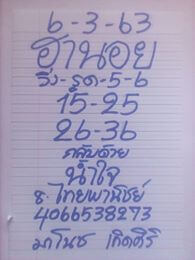 6-3-63
ฮานอย
วิ่ง-รูด-5-6
15-25
26-36
กลับด้วย
น้ำใจ
ธ.ไทยพานิชย์
4066538273
มาโนช เกิดศิริ